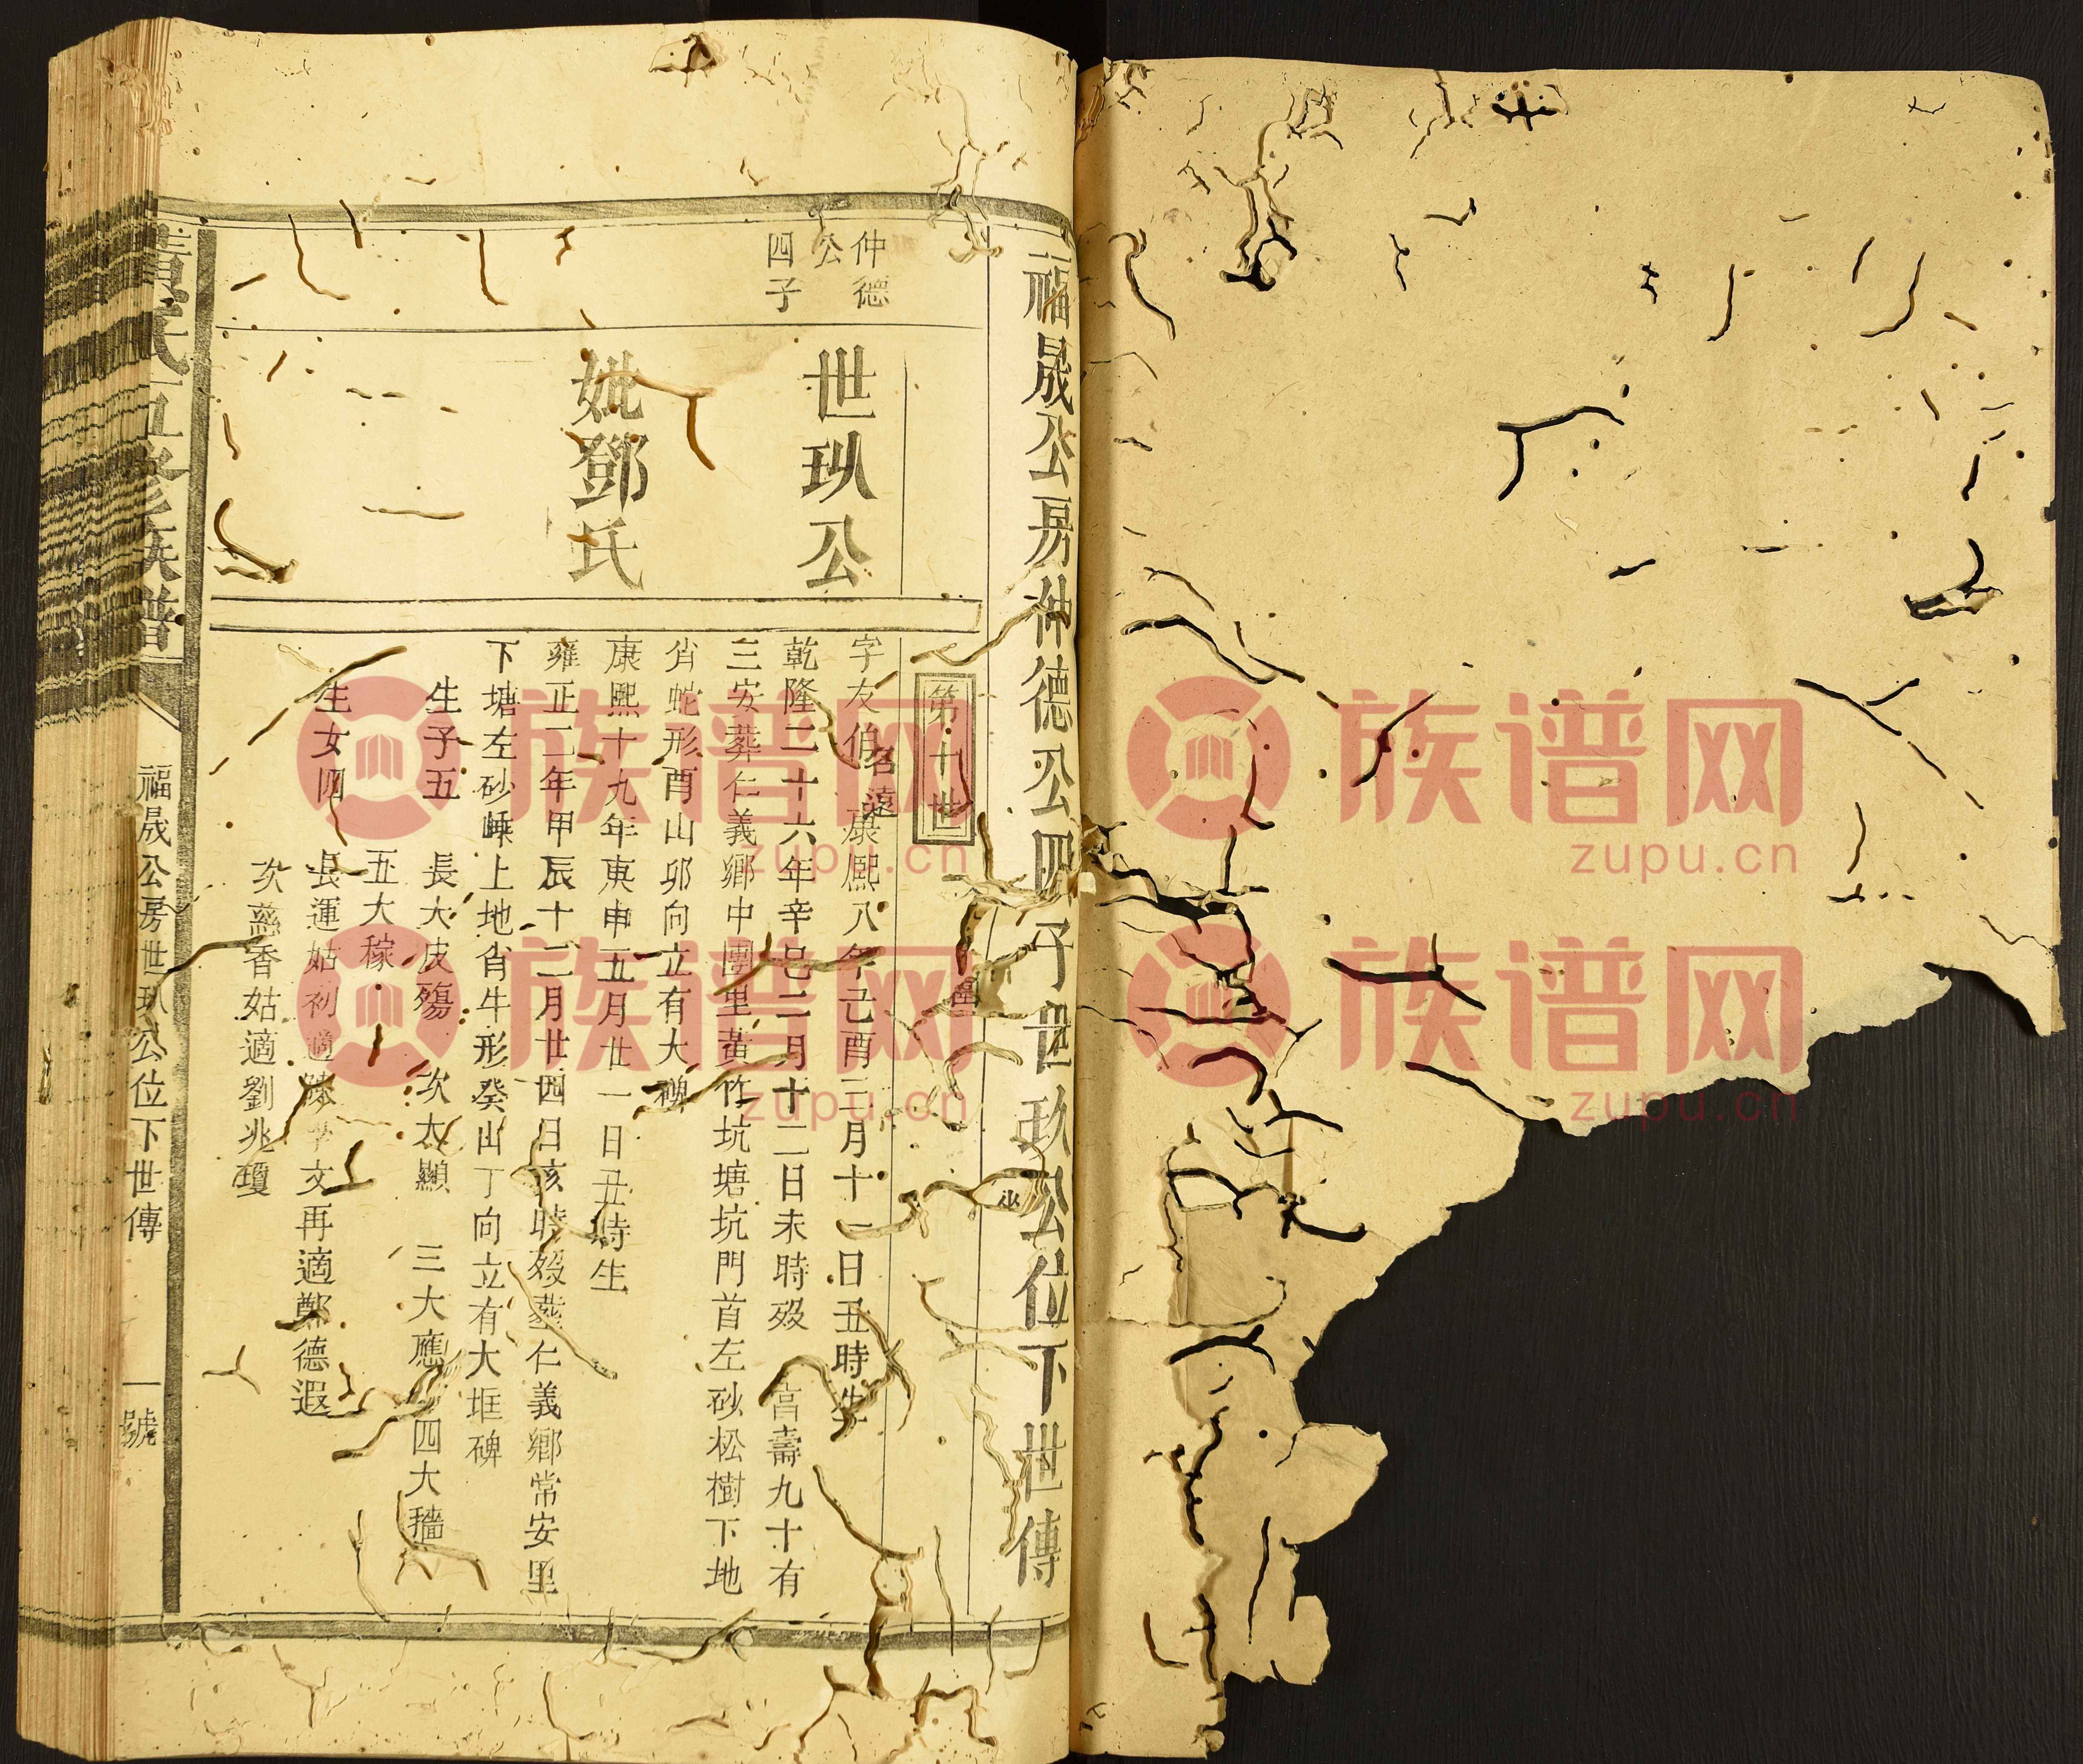 福晟公房仲德公四子世玖公位下世傳
第十世
仲德
公
四子
世玖公
字友伯名遠 康熙八年己酉三月十一日丑時生
乾隆二十六年辛巳二月十二日未時殁 高壽九十有
三安葬仁義鄉中團里黃竹坑塘坑門首左砂松樹下地
肖蛇形酉山卯向立有大碑
妣鄧氏
康熙十九年庚申五月廿一日丑時生
雍正二年甲辰十二月廿四日亥時殁葬仁義鄉常安里
下塘左砂嵊上地肖牛形癸山丁向立有大堆碑
生子五 長大皮殤 次大顯 三大應 四大穡
五大稼
生女四 長運姑初適 文再適鄭德遐
次慈香姑適劉兆瓊
氏五修族譜
福晟公房世玖公位下世傳
一號
族谱网
zupu.cn
族谱网
zupu.cn
族谱网
zupu.cn
族谱网
zupu.cn